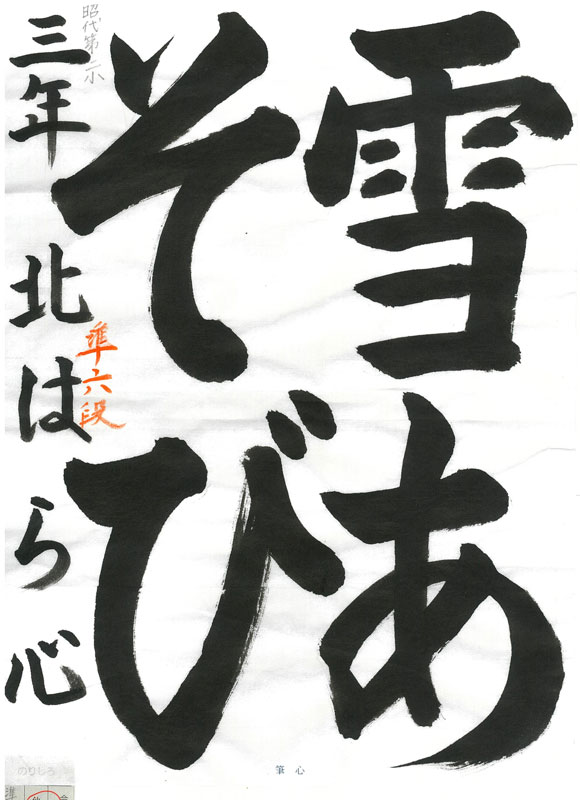 雪あ
そび
三年 北はら 心
昭代第一小
準六段
筆心
のりしろ